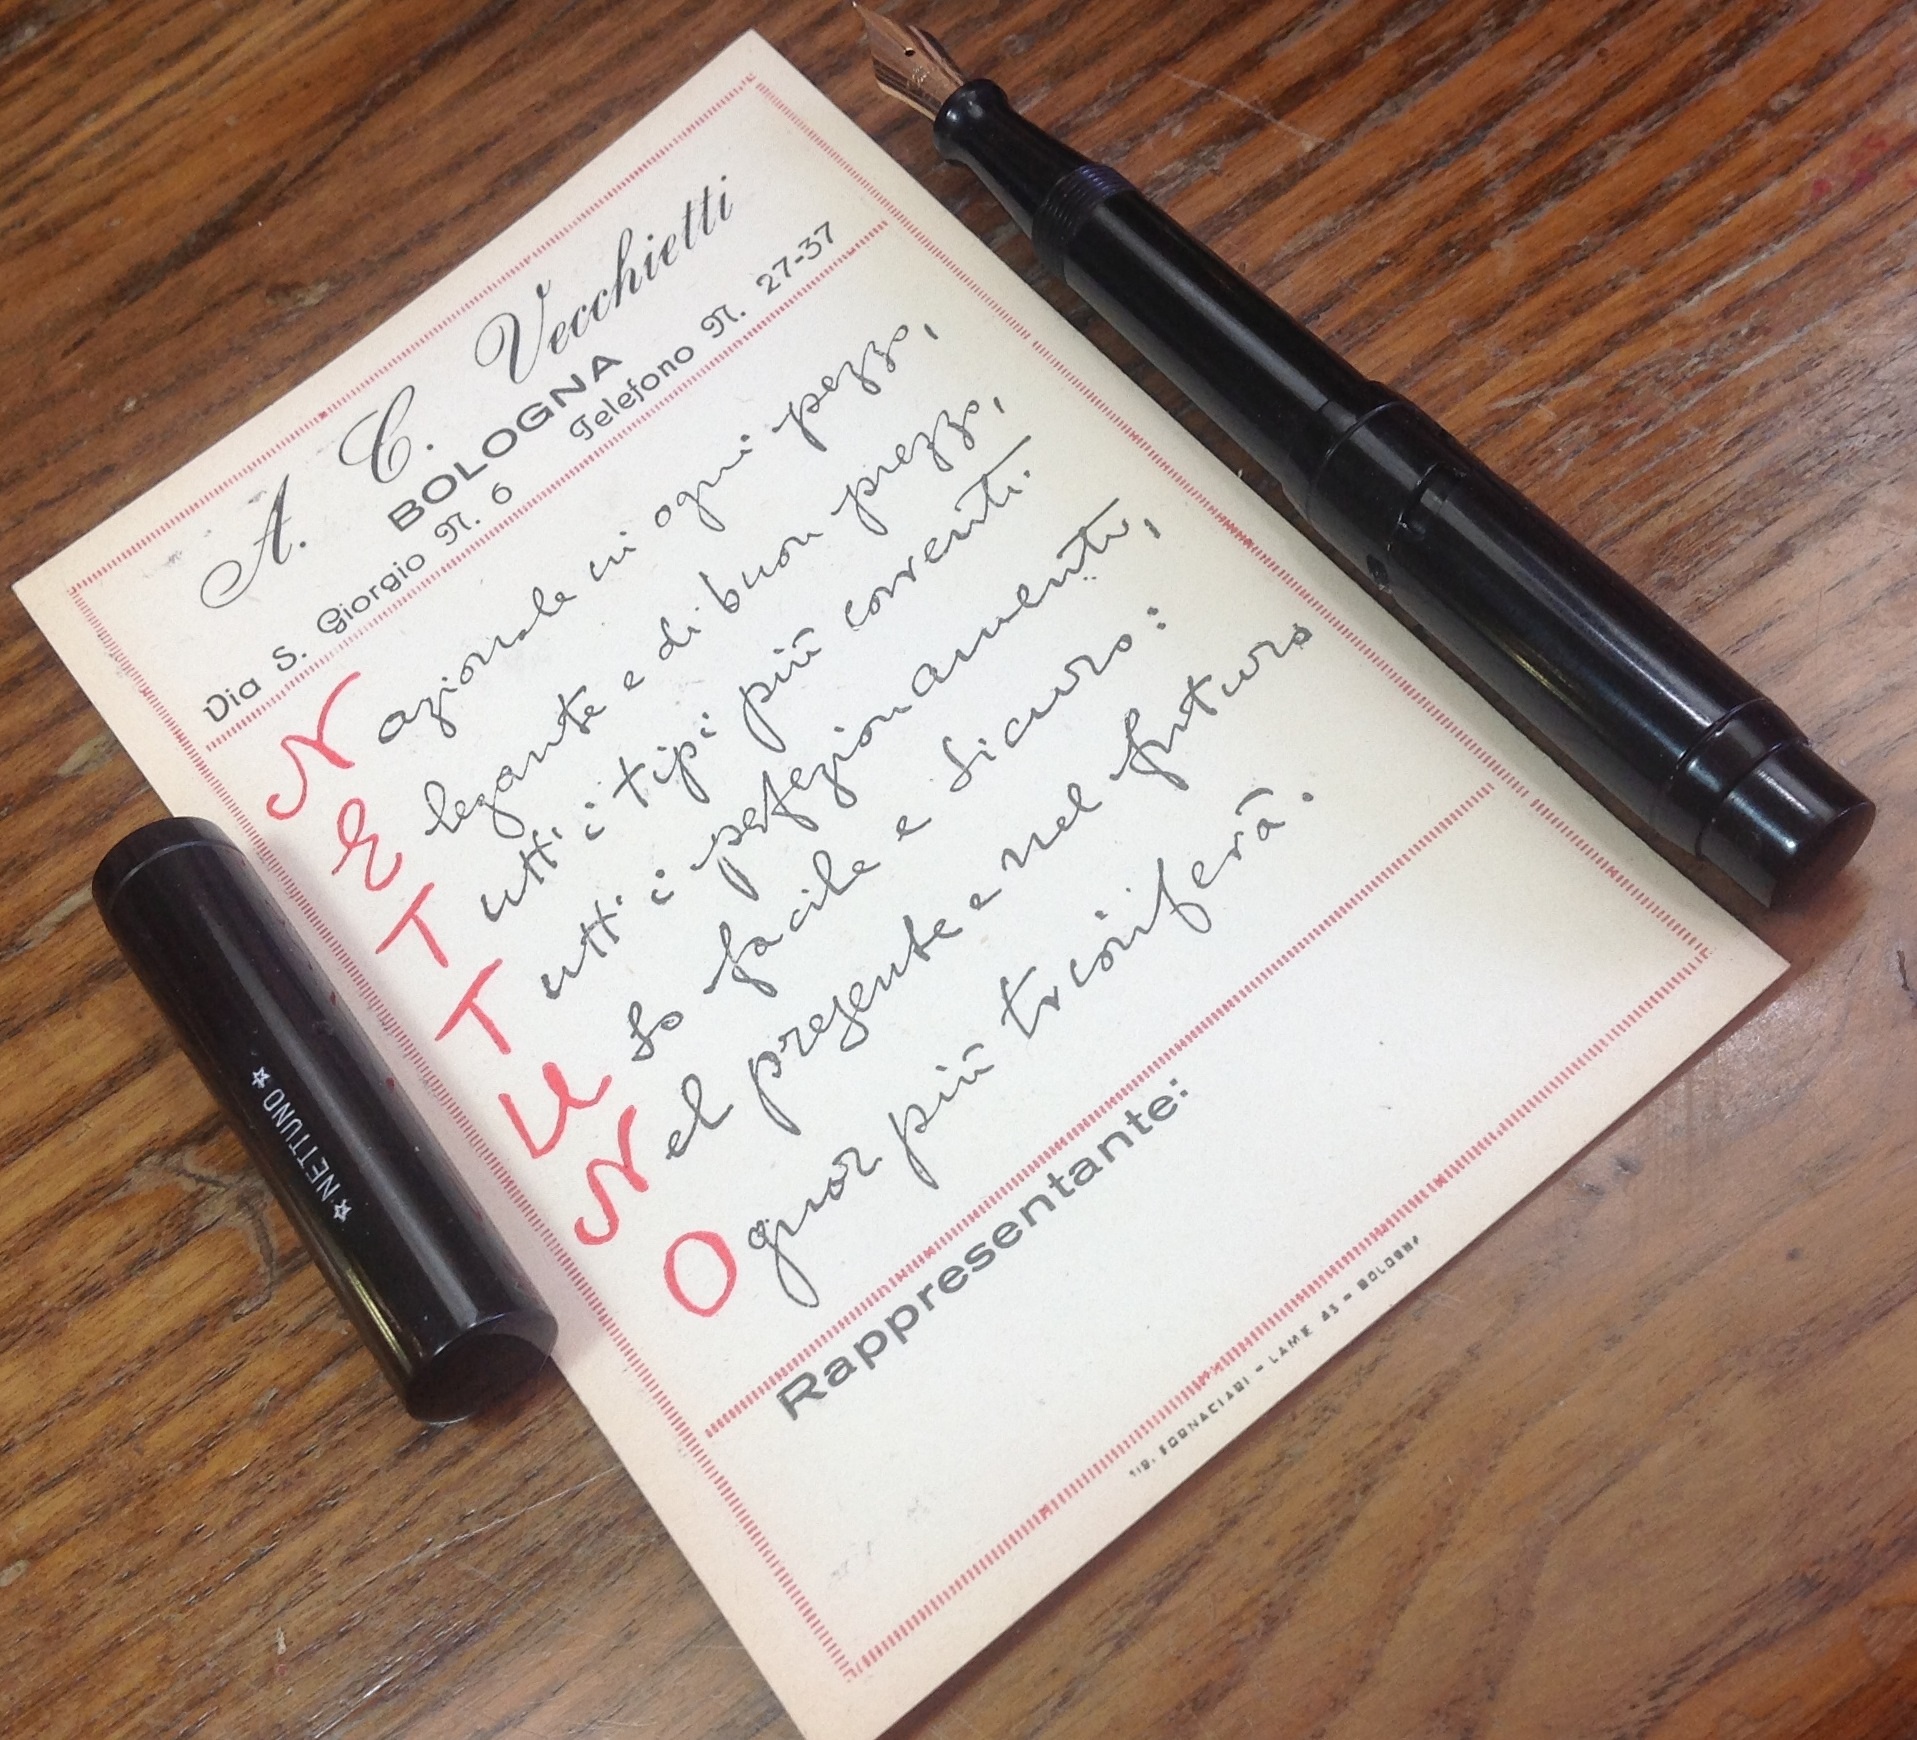 A. C. Vecchietti
BOLOGNA
Via S. Giorgio N. 6 Telefono N. 27-37
Nazionale in ogni pezzo,
Elegante e di buon prezzo,
Tutti i tipi più correnti.
Tutti i perfezionamenti,
Uso facile e sicuro:
Nel presente e nel futuro
Ognor più trionferà.
Rappresentante:
TIP. FORNACIARI - LAME 45 - BOLOGNA
★ NETTUNO ★